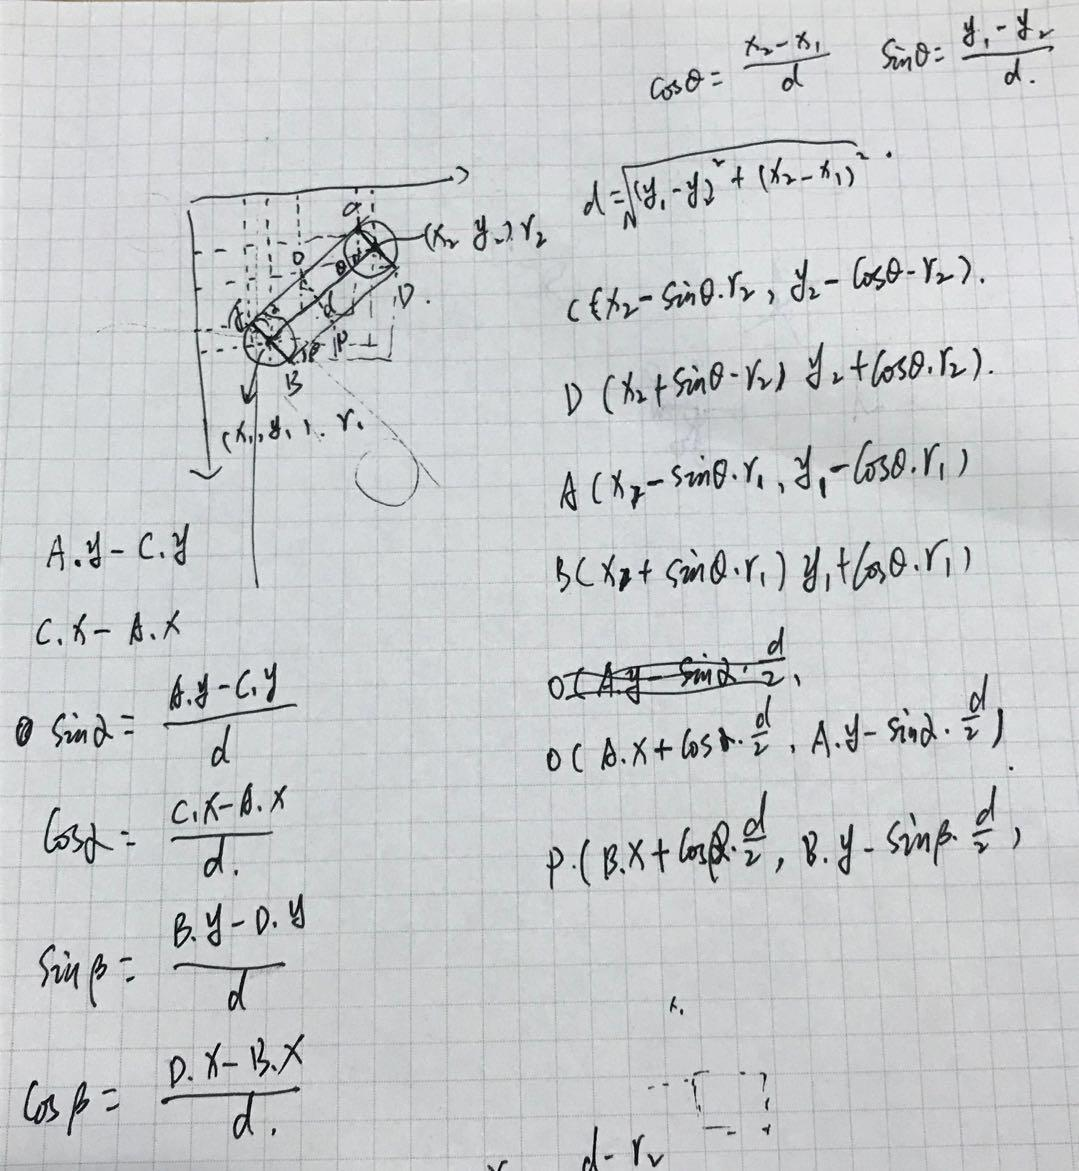 cosθ = (x₂-x₁)/d
sinθ = (y₁-y₂)/d.
d = √((y₁-y₂)² + (x₂-x₁)²).
(x₂ y₂) r₂
θ
d
D.
P
β
B
(x₁, y₁). r₁
C(x₂-sinθ.r₂, y₂-cosθ-r₂).
D(x₂+sinθ-r₂) y₂+cosθ.r₂).
A(x₂-sinθ.r₁, y₁-cosθ.r₁)
B(x₂+sinθ.r₁) y₁+cosθ.r₁)
A.y-C.y
C.x-A.x
sinα = (A.y-C.y)/d
cosα = (C.x-A.x)/d.
sinβ = (B.y-D.y)/d
cosβ = (D.x-B.x)/d.
O(A.y-sinα.d/2,
O(A.x+cosα.d/2, A.y-sinα.d/2).
P.(B.x+cosβ.d/2, B.y-sinβ.d/2,
x.
d-r₂